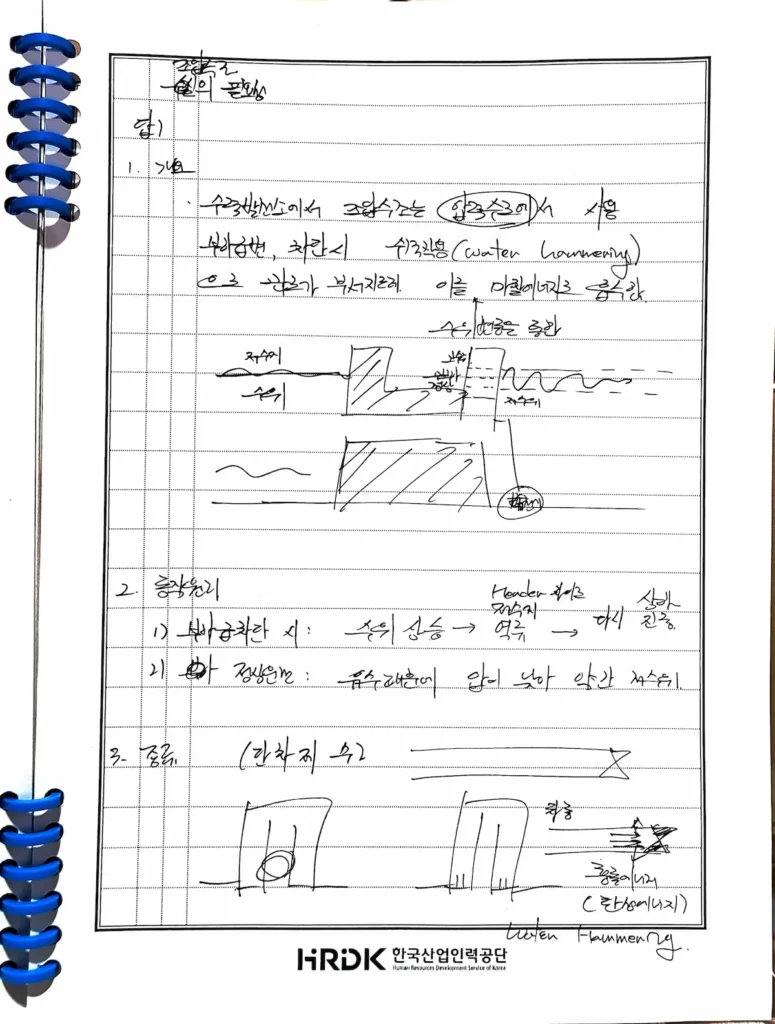 조압수조
의 필요성
답)
1. 개요
· 수력발전소에서 조압수조는 압력수로에서 사용
부하급변, 차단시 수격작용(water hammering)
으로 관로가 부서지므로 이를 마찰에너지로 흡수함.
수위 변동을 통한
저수지
수위
저수위
2. 동작원리
1) 부하급차단 시: 수위 상승 → 역류 → 다시
Header
저수지
진동
2) 정상운전: 유수때문에 압이 낮아 약간 저수위.
3. 종류 (단 차 제 수)
충돌에너지
(탄성에너지)
Water Hammering.
HRDK 한국산업인력공단
Human Resources Development Service of Korea